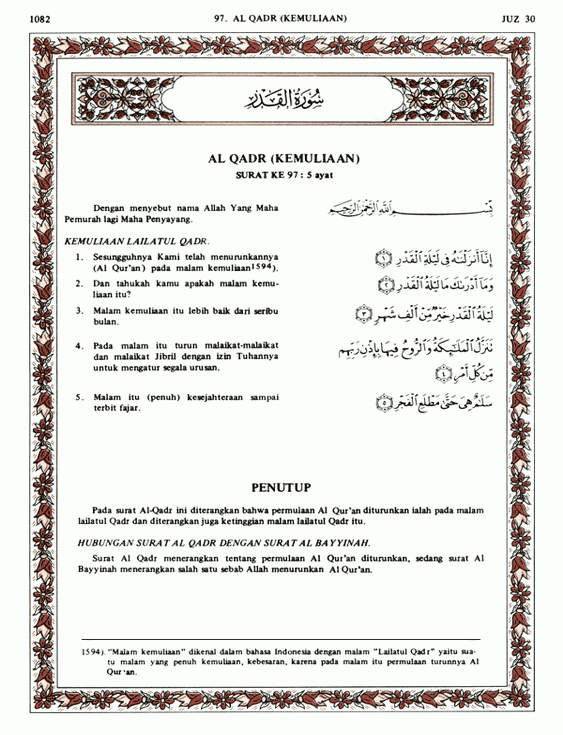 1082 97. AL QADR (KEMULIAAN) JUZ 30
سُورَةُ الْقَدْرِ
AL QADR (KEMULIAAN)
SURAT KE 97 : 5 ayat
Dengan menyebut nama Allah Yang Maha
Pemurah lagi Maha Penyayang.
بِسْمِ اللَّهِ الرَّحْمَٰنِ الرَّحِيمِ
KEMULIAAN LAILATUL QADR.
1. Sesungguhnya Kami telah menurunkannya
(Al Qur'an) pada malam kemuliaan1594).
إِنَّا أَنزَلْنَاهُ فِي لَيْلَةِ الْقَدْرِ ﴿١﴾
2. Dan tahukah kamu apakah malam kemu-
liaan itu?
وَمَا أَدْرَاكَ مَا لَيْلَةُ الْقَدْرِ ﴿٢﴾
3. Malam kemuliaan itu lebih baik dari seribu
bulan.
لَيْلَةُ الْقَدْرِ خَيْرٌ مِّنْ أَلْفِ شَهْرٍ ﴿٣﴾
4. Pada malam itu turun malaikat-malaikat
dan malaikat Jibril dengan izin Tuhannya
untuk mengatur segala urusan.
تَنَزَّلُ الْمَلَائِكَةُ وَالرُّوحُ فِيهَا بِإِذْنِ رَبِّهِم
مِّن كُلِّ أَمْرٍ ﴿٤﴾
5. Malam itu (penuh) kesejahteraan sampai
terbit fajar.
سَلَامٌ هِيَ حَتَّىٰ مَطْلَعِ الْفَجْرِ ﴿٥﴾
PENUTUP
Pada surat Al-Qadr ini diterangkan bahwa permulaan Al Qur'an diturunkan ialah pada malam
lailatul Qadr dan diterangkan juga ketinggian malam lailatul Qadr itu.
HUBUNGAN SURAT AL QADR DENGAN SURAT AL BAYYINAH.
Surat Al Qadr menerangkan tentang permulaan Al Qur'an diturunkan, sedang surat Al
Bayyinah menerangkan salah satu sebab Allah menurunkan Al Qur'an.
1594). "Malam kemuliaan" dikenal dalam bahasa Indonesia dengan malam "Lailatul Qadr" yaitu sua-
tu malam yang penuh kemuliaan, kebesaran, karena pada malam itu permulaan turunnya Al
Qur'an.